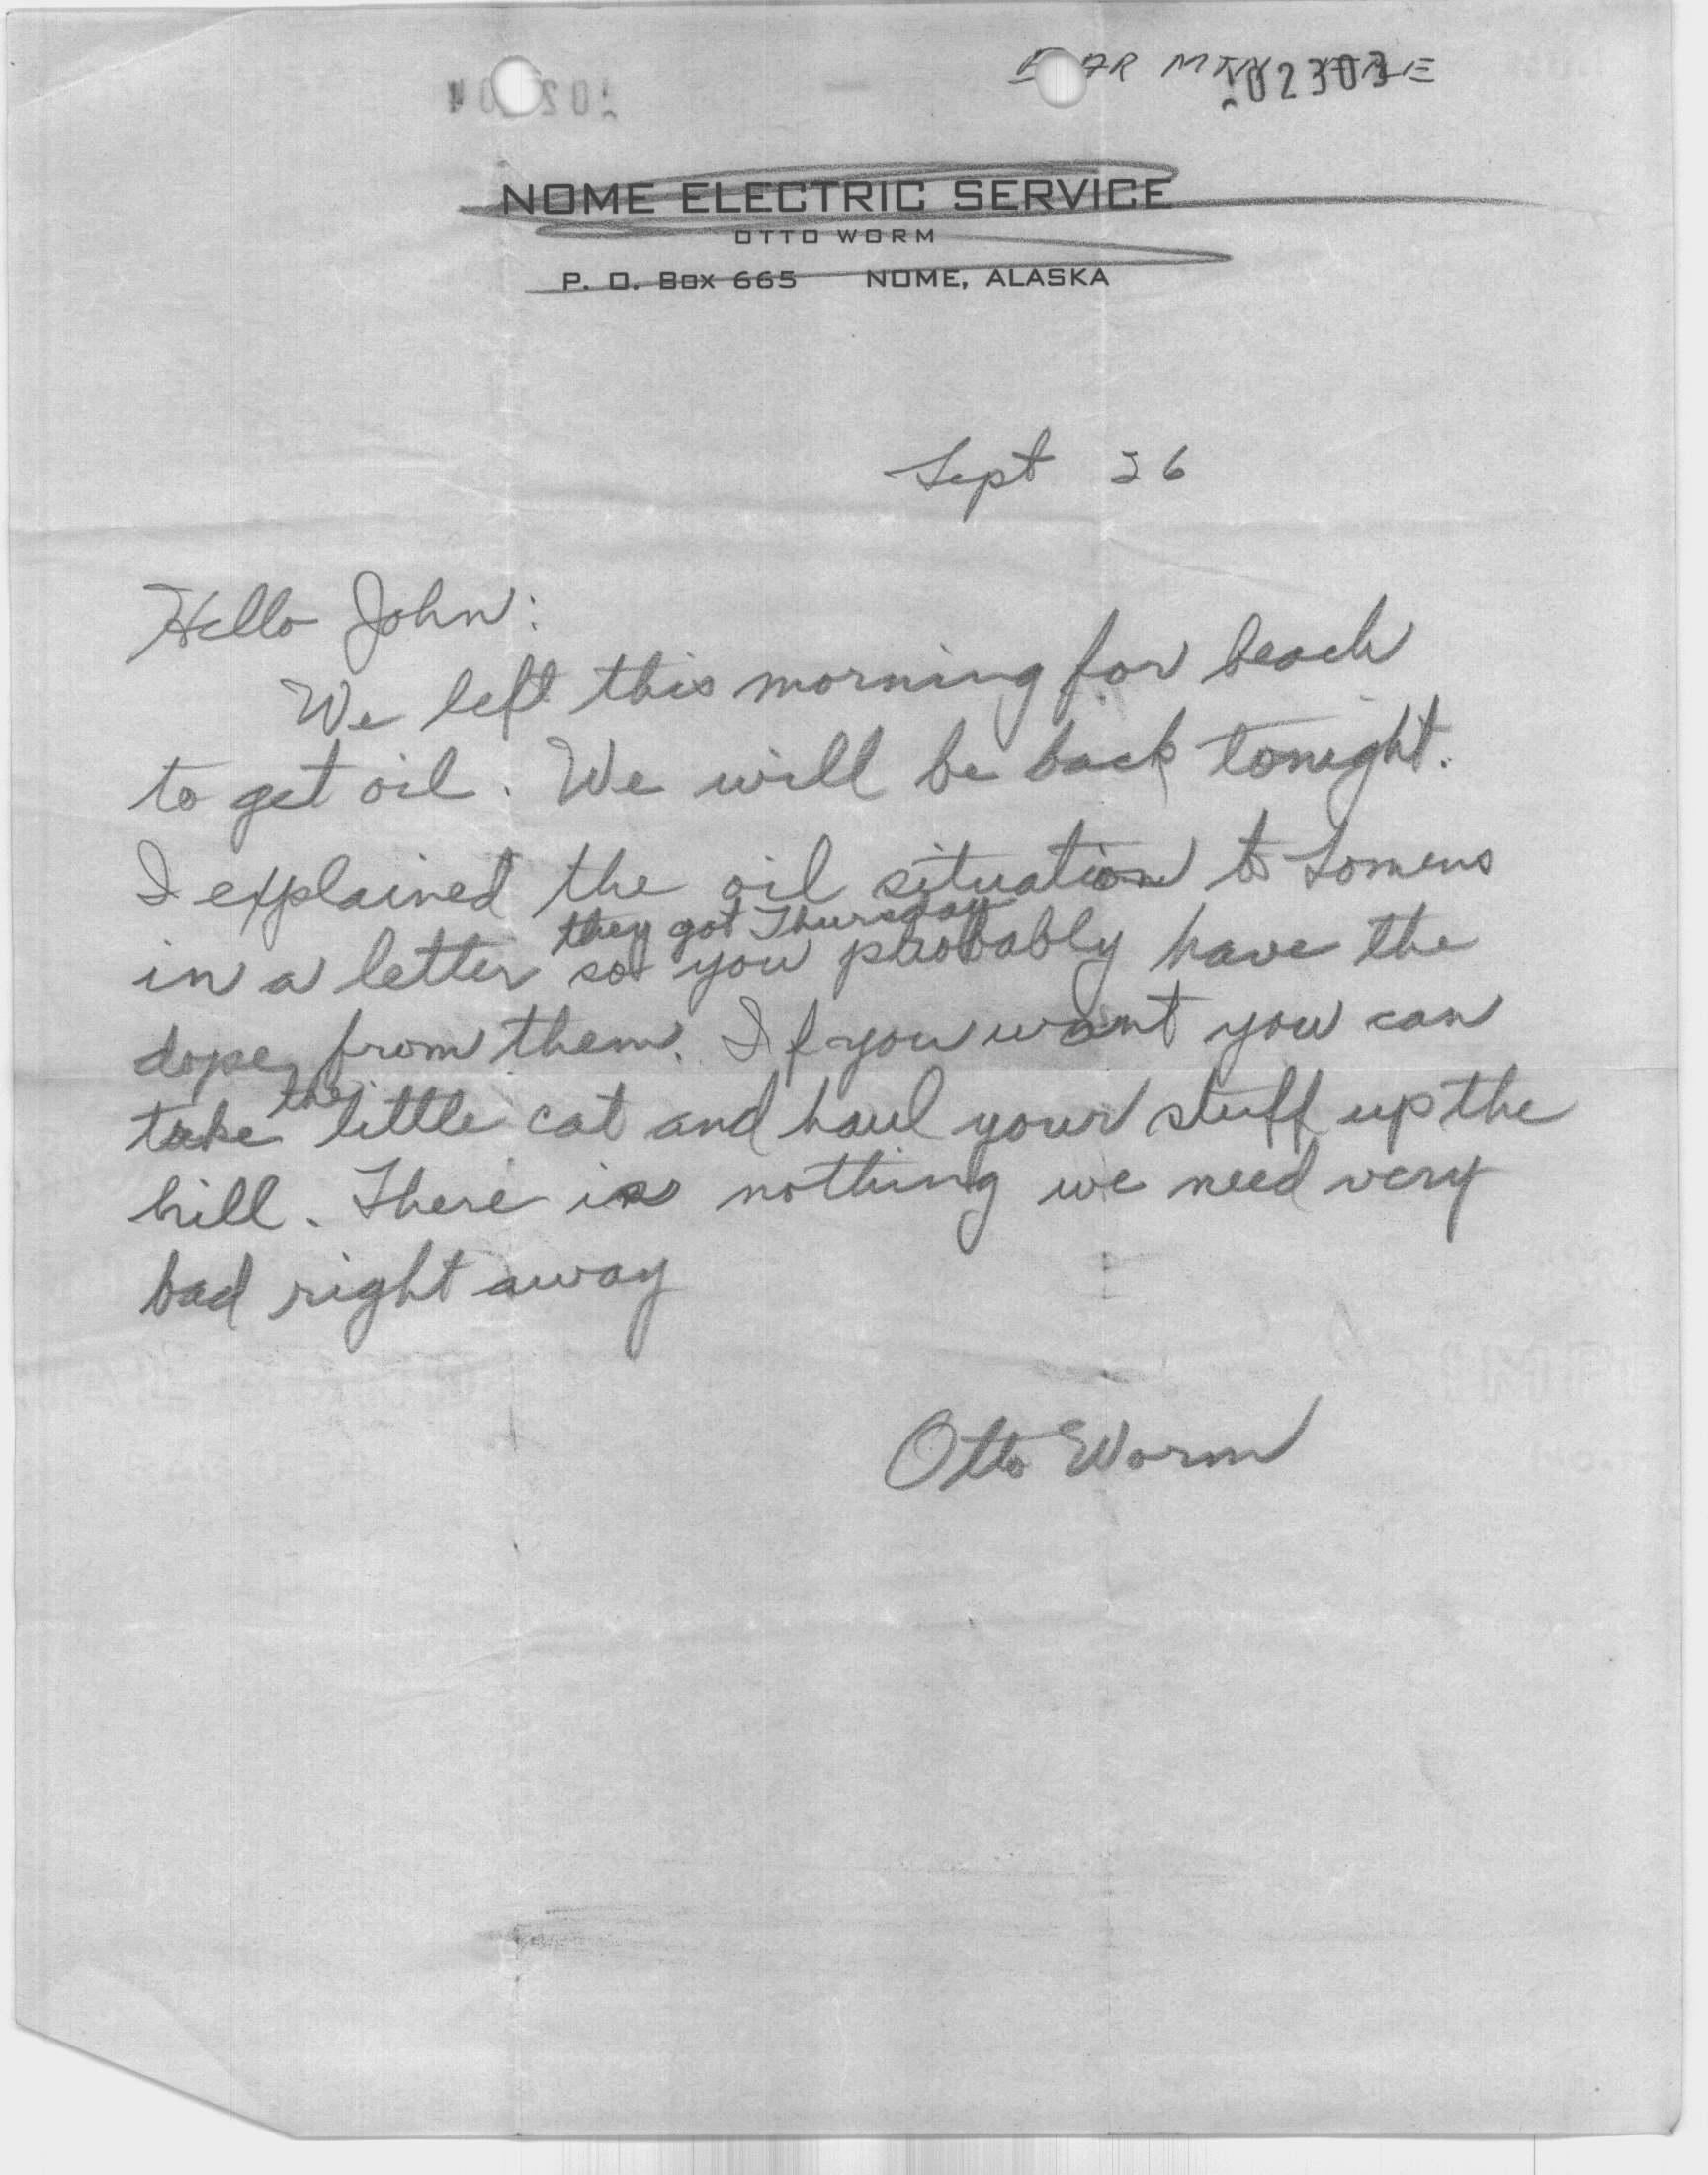 MTN
102303
NOME ELECTRIC SERVICE
OTTO WORM
P. O. Box 665 NOME, ALASKA
Sept 26
Hello John:
We left this morning for beach
to get oil. We will be back tonight.
I explained the oil situation to Lomens
they got Thursday
in a letter so you probably have the
dope from them. If you want you can
take the little cat and haul your stuff up the
hill. There is nothing we need very
bad right away
Otto Worm